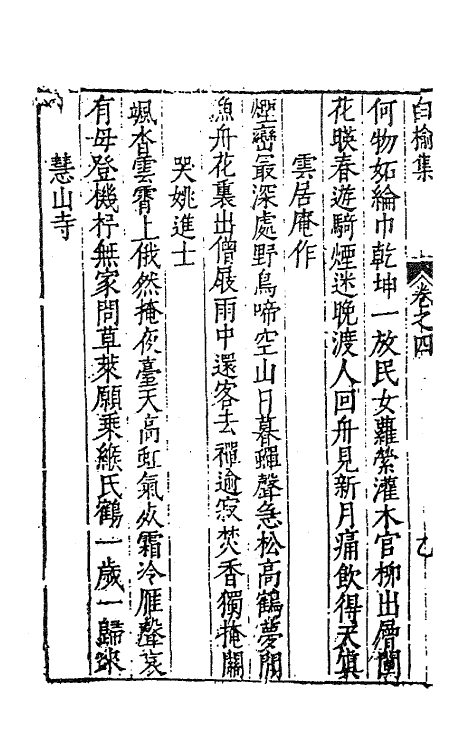 白榆集 卷之四
何物妬綸巾乾坤一放民女蘿縈灌木官柳出層闉
花暎春遊騎煙迷晚渡人回舟見新月痛飲得天眞
雲居庵作
煙巒最深處野鳥啼空山日暮蟬聲急松高鶴夢閒
漁舟花裏出僧屐雨中還客去禪逾寂焚香獨掩關
哭姚進士
颯沓雲霄上俄然掩夜臺天高虹氣 霜冷雁聲哀
有母登機杼無家問草萊願乘緱氏鶴一歲一歸來
慧山寺